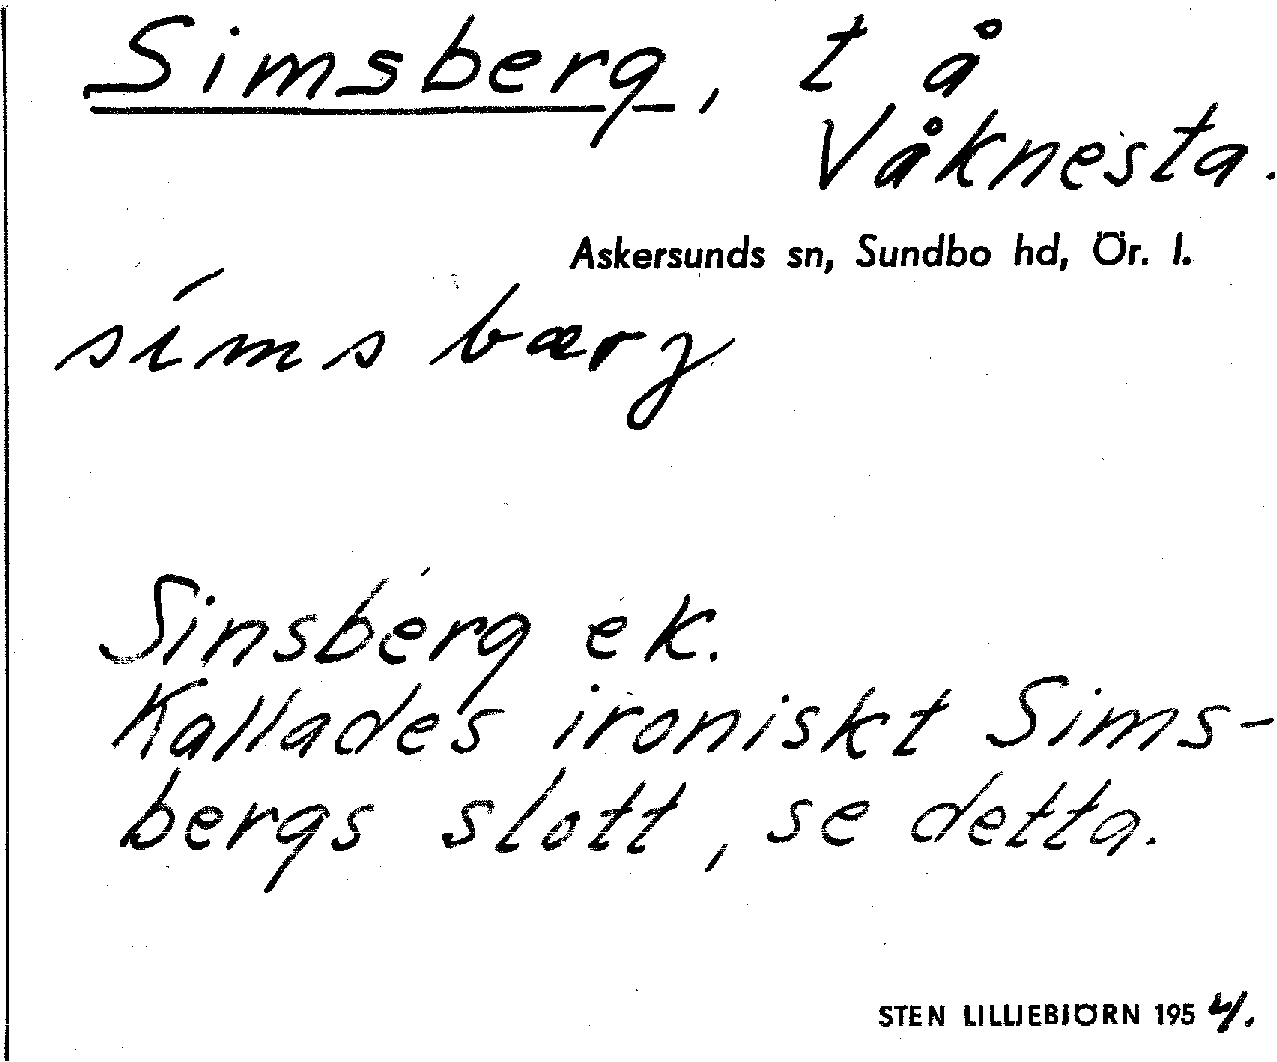 Simsberg, t å
Våknesta.
Askersunds sn, Sundbo hd, Ör. l.
símsbærg
Sinsberg ek.
Kallades ironiskt Sims-
bergs slott, se detta.
STEN LILLJEBJÖRN 1954.